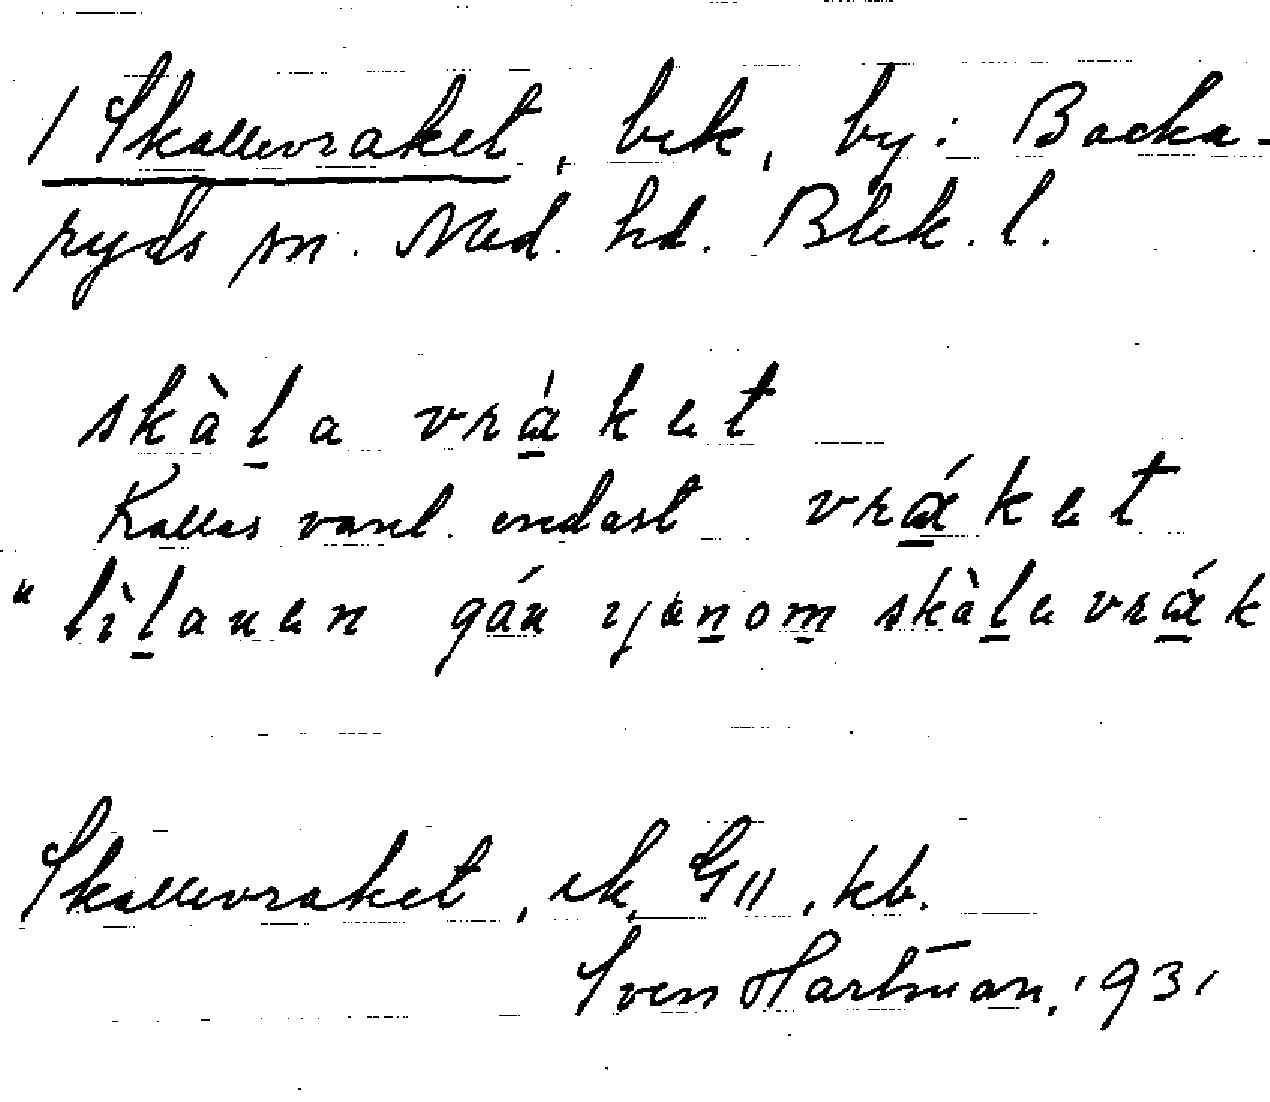 / Skallevraket, bek, by: Backa-
ryds sn. Med. hd. Blek. l.
skàl̠a vrá̠ket
Kallas vanl. endast vrá̠ket
" lìl̠auen gán yen̠om̠ skàl̠e vrá̠k
Skallevraket, ek, G11, kb.
Sven Hartman, 1931